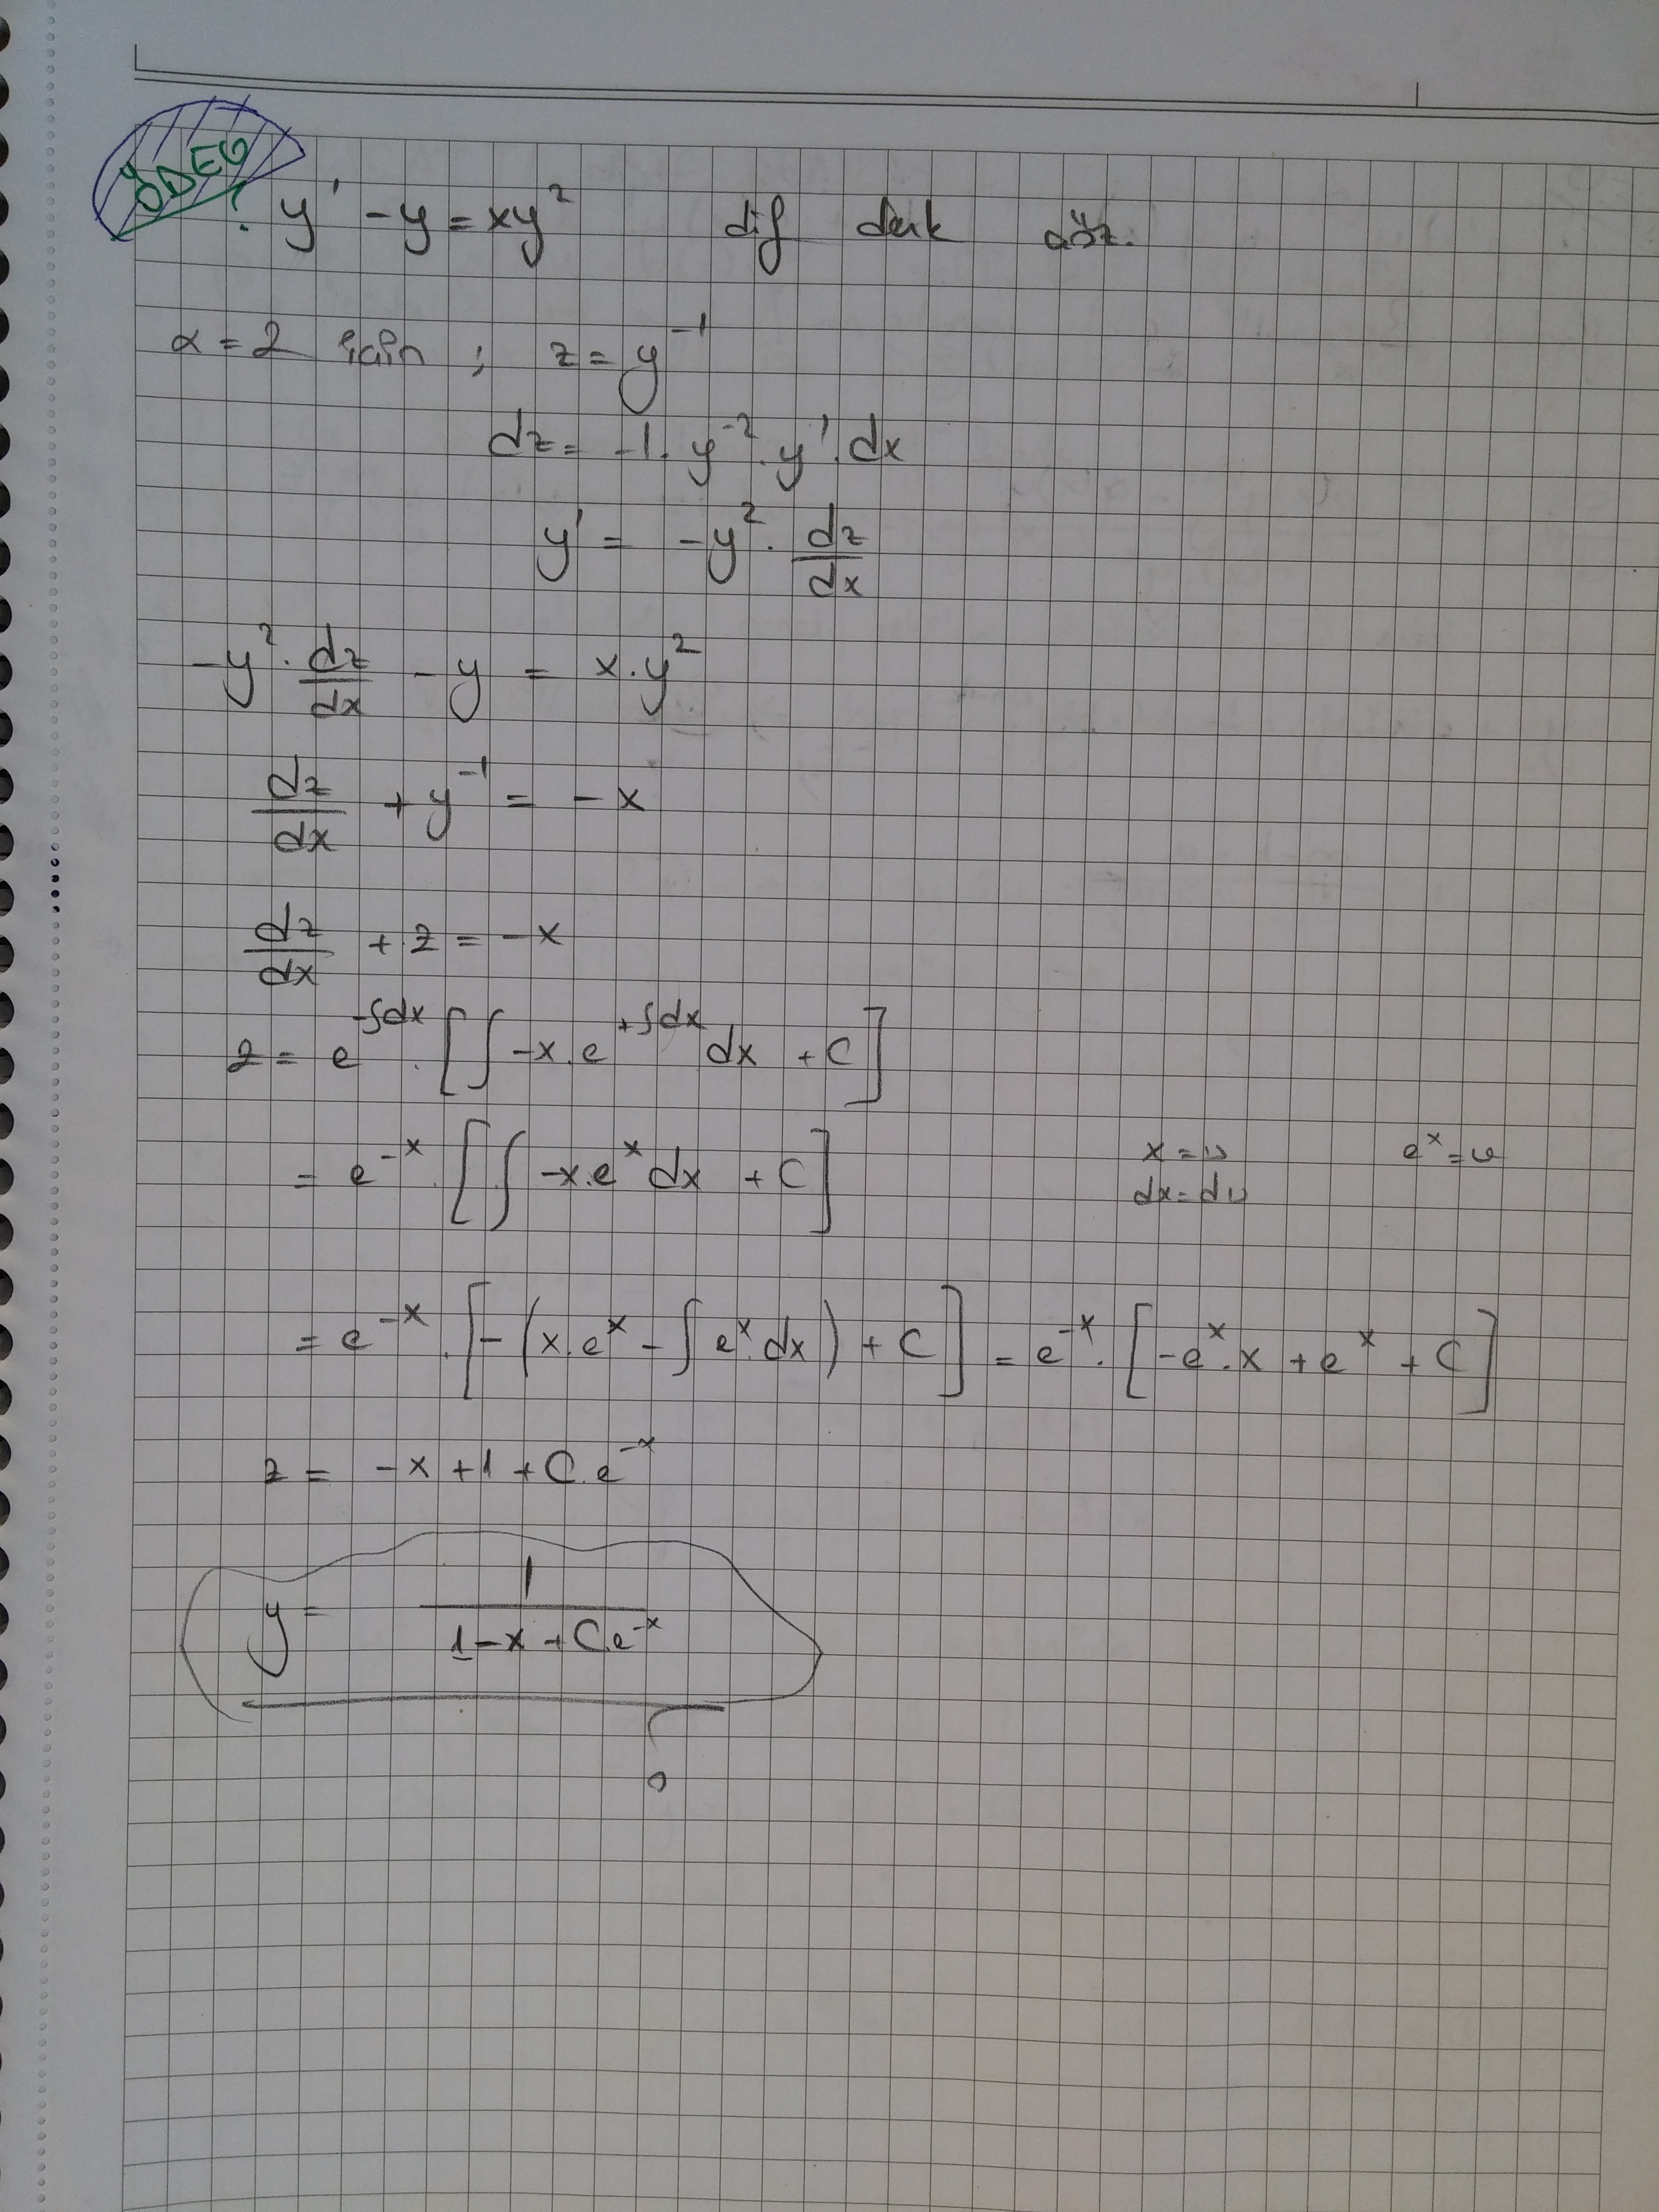 ÖDEV
y' - y = xy² dif denk çöz.
α = 2 için ; z = y⁻¹
dz = -1 . y⁻² . y' . dx
y' = -y² . dz/dx
-y² . dz/dx - y = x . y²
dz/dx + y⁻¹ = -x
dz/dx + z = -x
z = e^(-∫dx) . [∫ -x . e^(+∫dx) dx + C]
= e⁻ˣ . [∫ -x.eˣ dx + C] x = u eˣ = v
dx = du
= e⁻ˣ . [-(x.eˣ - ∫ eˣ.dx) + C] = e⁻ˣ . [-eˣ.x + eˣ + C]
z = -x + 1 + C.e⁻ˣ
y = 1/(1-x + C.e⁻ˣ)